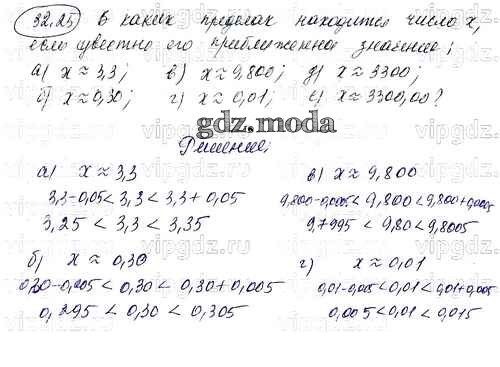 32.25 В каких пределах находится число x,
если известно его приближенное значение:
а) x ≈ 3,3; в) x ≈ 9,800; д) x ≈ 3300;
б) x ≈ 0,30; г) x ≈ 0,01; е) x ≈ 3300,00?
gdz.moda
Решение:
а) x ≈ 3,3
3,3-0,05 < 3,3 < 3,3+0,05
3,25 < 3,3 < 3,35
б) x ≈ 0,30
0,30-0,005 < 0,30 < 0,30+0,005
0,295 < 0,30 < 0,305
в) x ≈ 9,800
9,800-0,0005 < 9,800 < 9,800+0,0005
9,7995 < 9,80 < 9,8005
г) x ≈ 0,01
0,01-0,005 < 0,01 < 0,01+0,005
0,005 < 0,01 < 0,015
vipgdz.ru